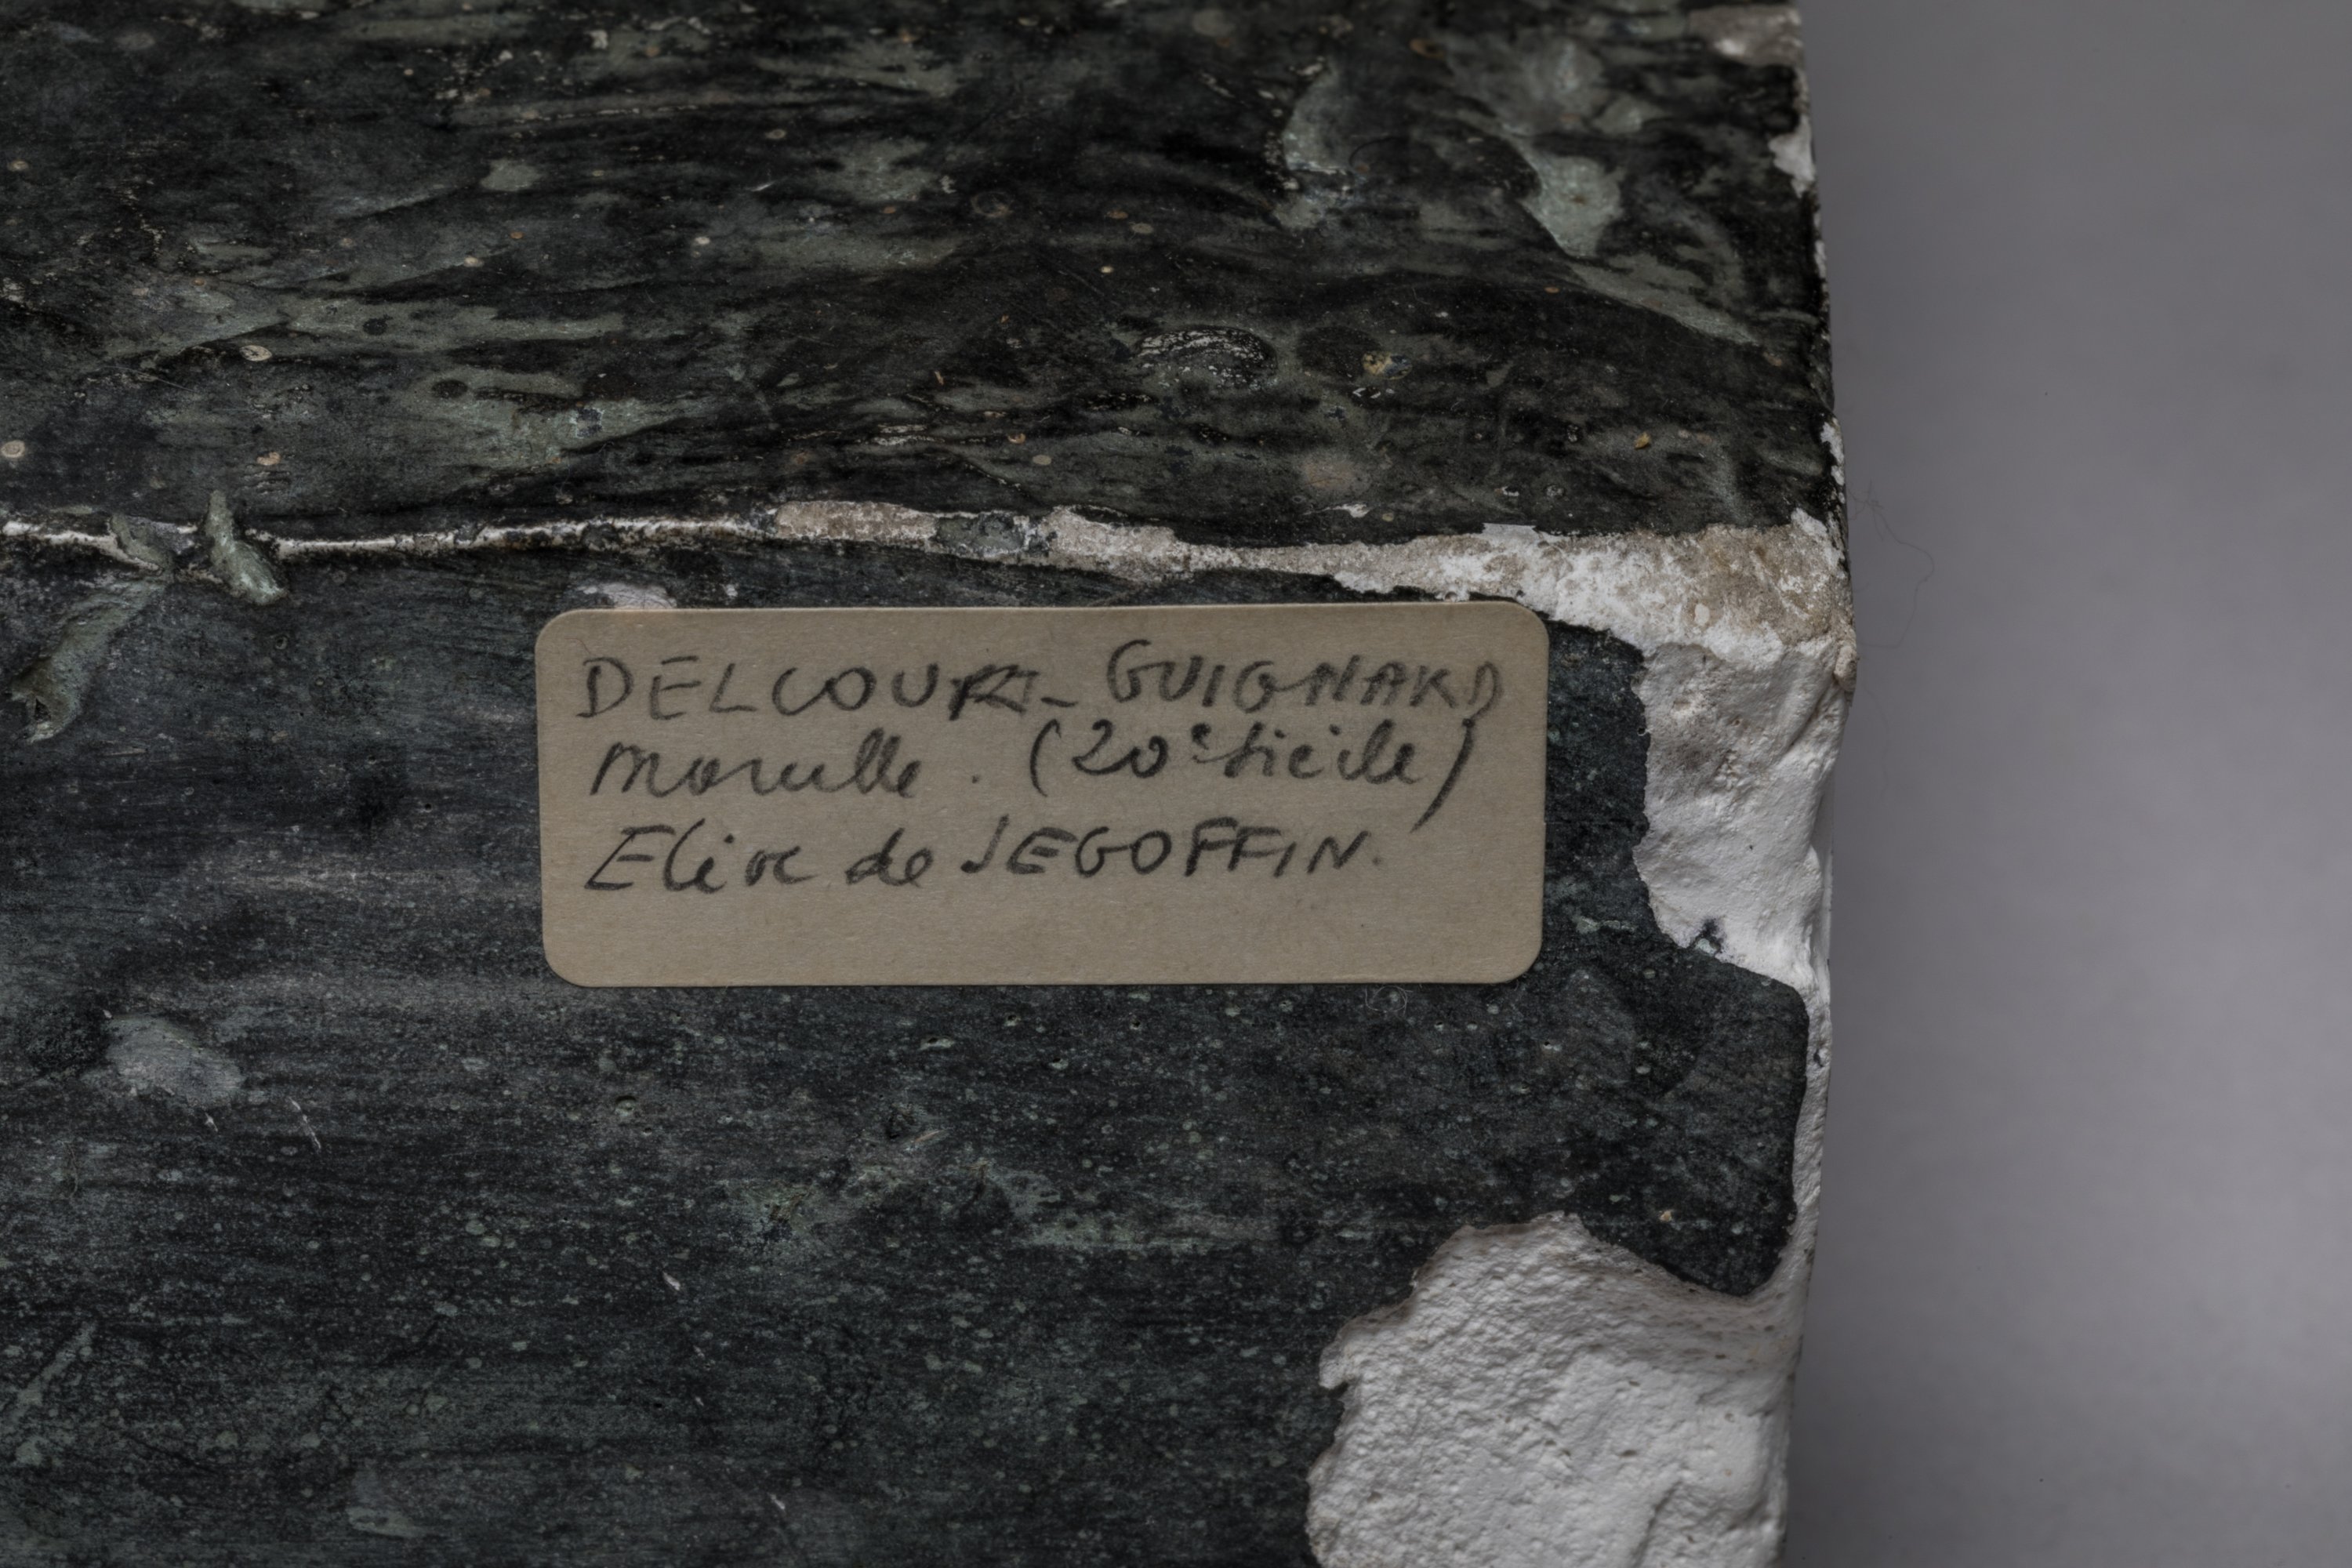 DELCOURT_ GUIGNARD
Marcelle . (20e siècle)
Elève de JEGOFFIN.